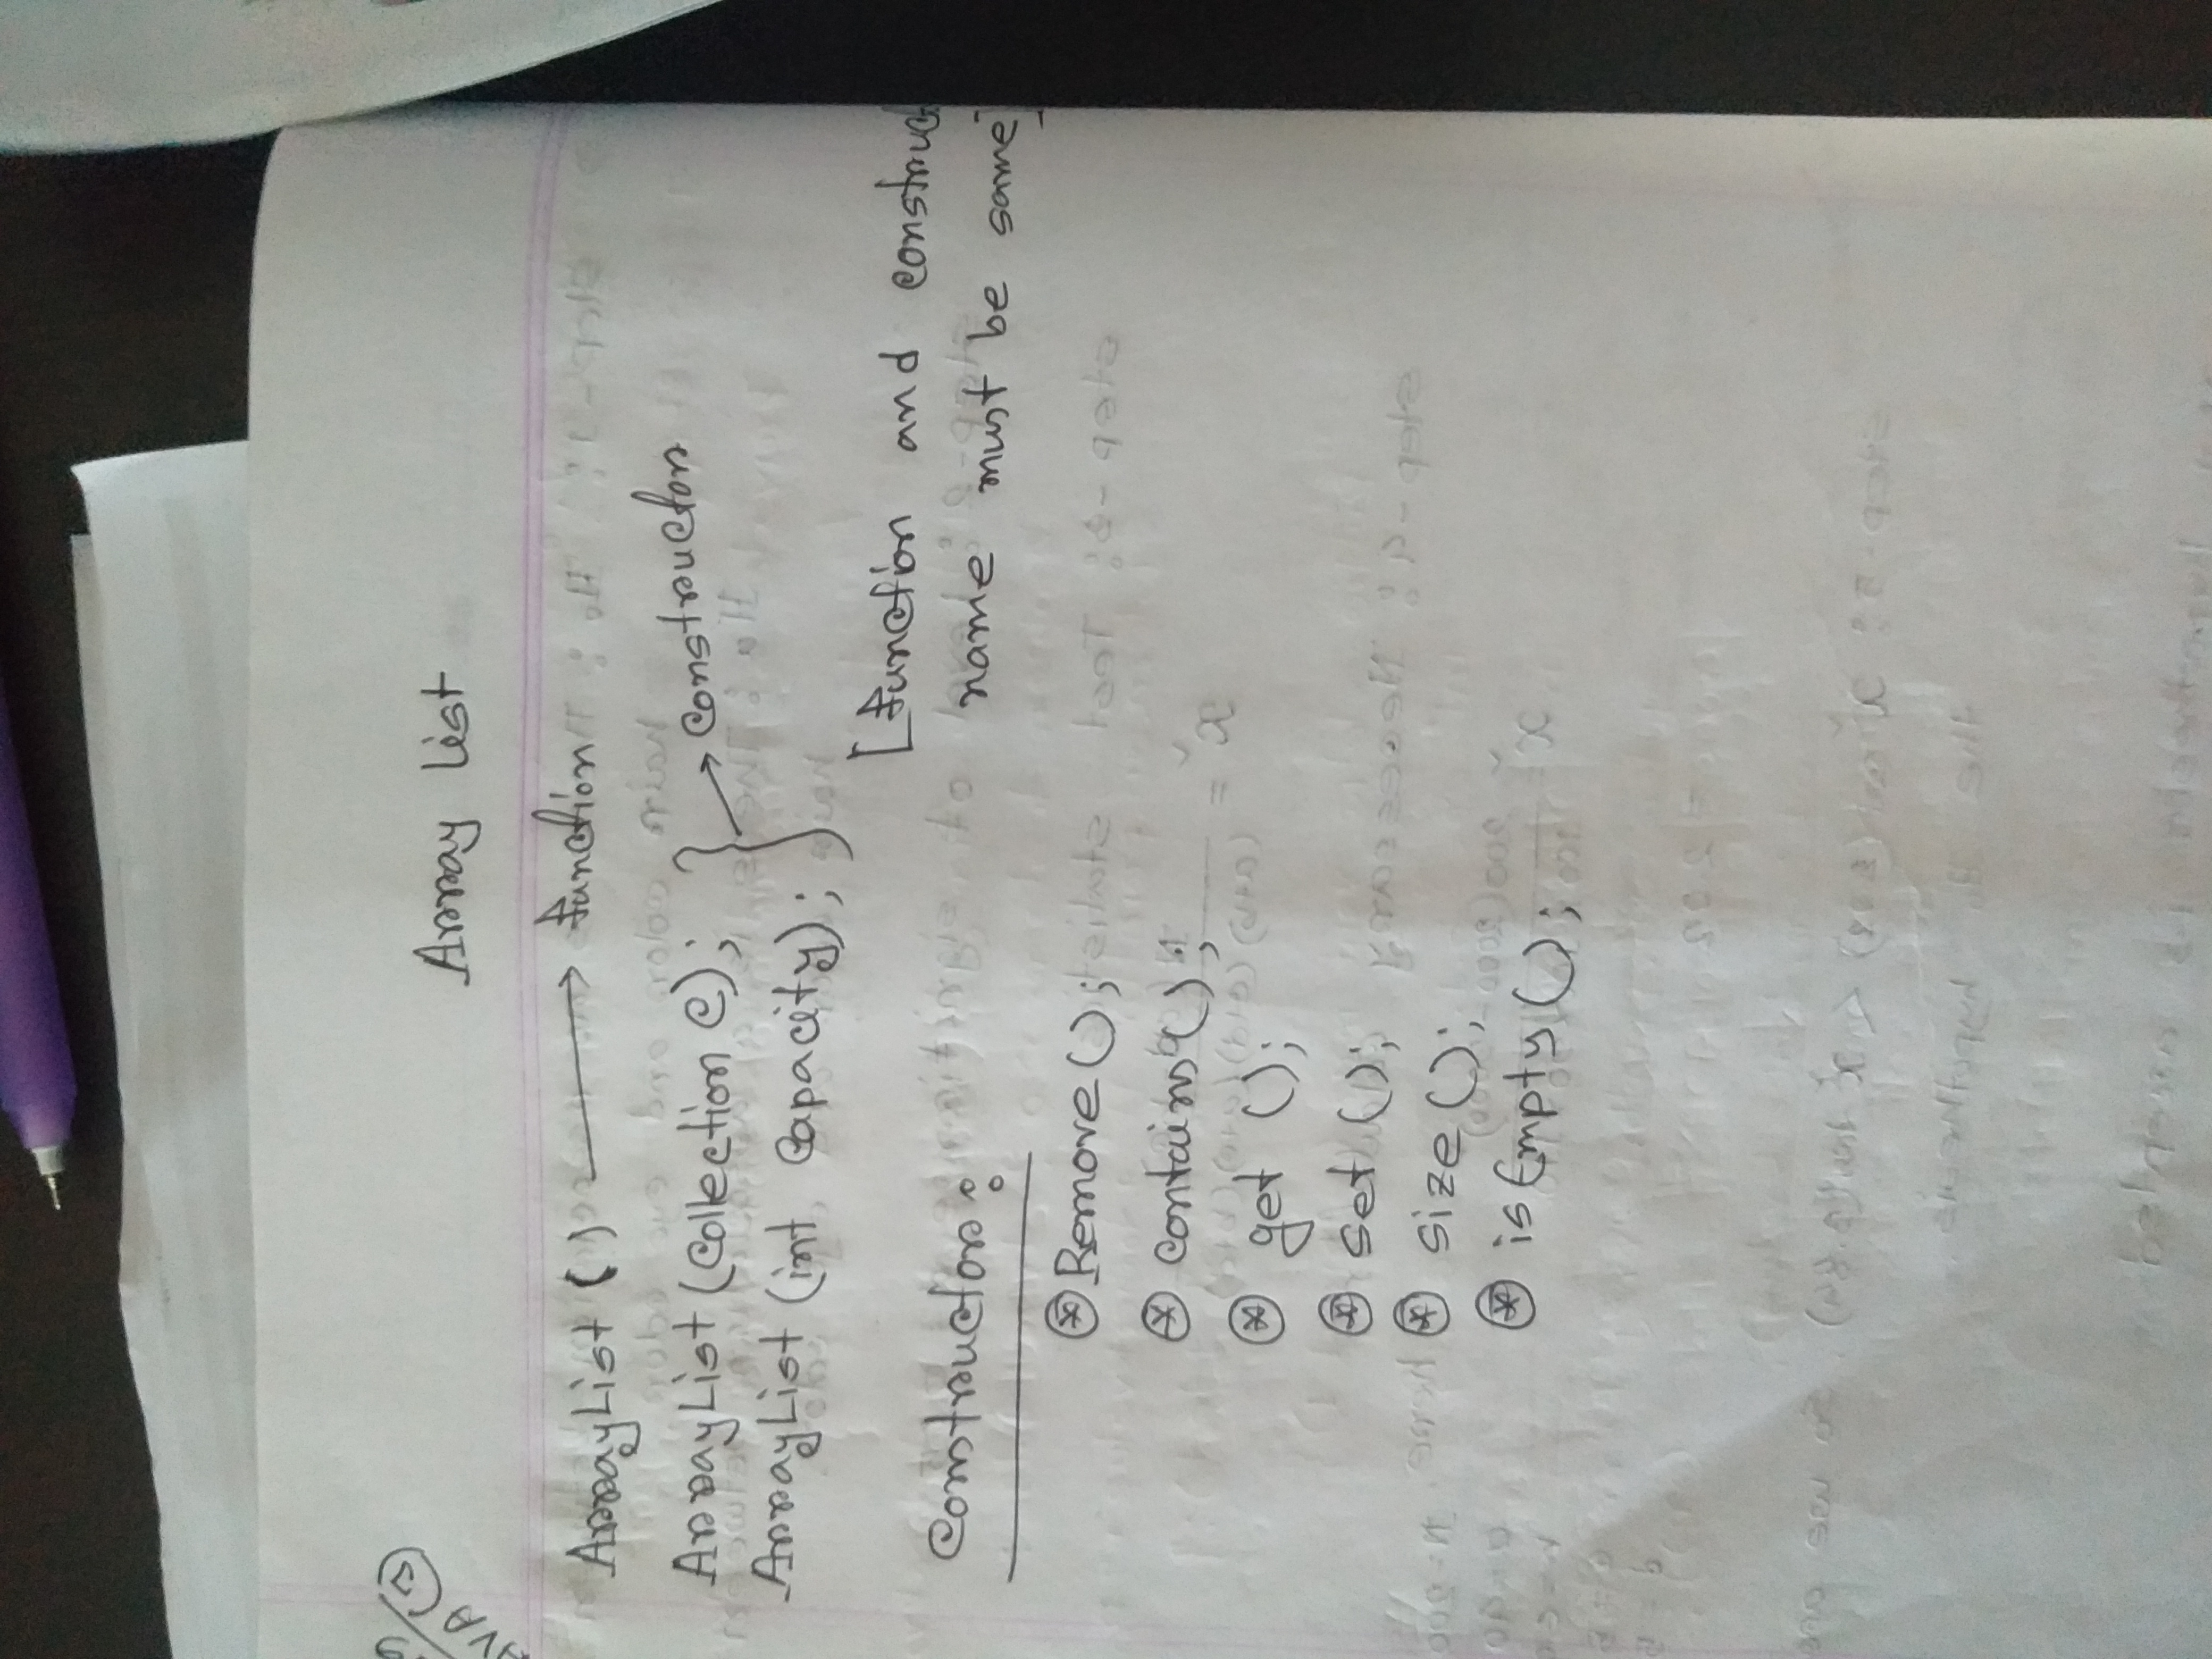 Array List
ArrayList () → function
ArrayList (Collection c);
→ constructor
ArrayList (int capacity);
[function and construct
name must be same]
Constructor:
* Remove ();
* contains ();
* get ();
* set ();
* size ();
* is Empty ();